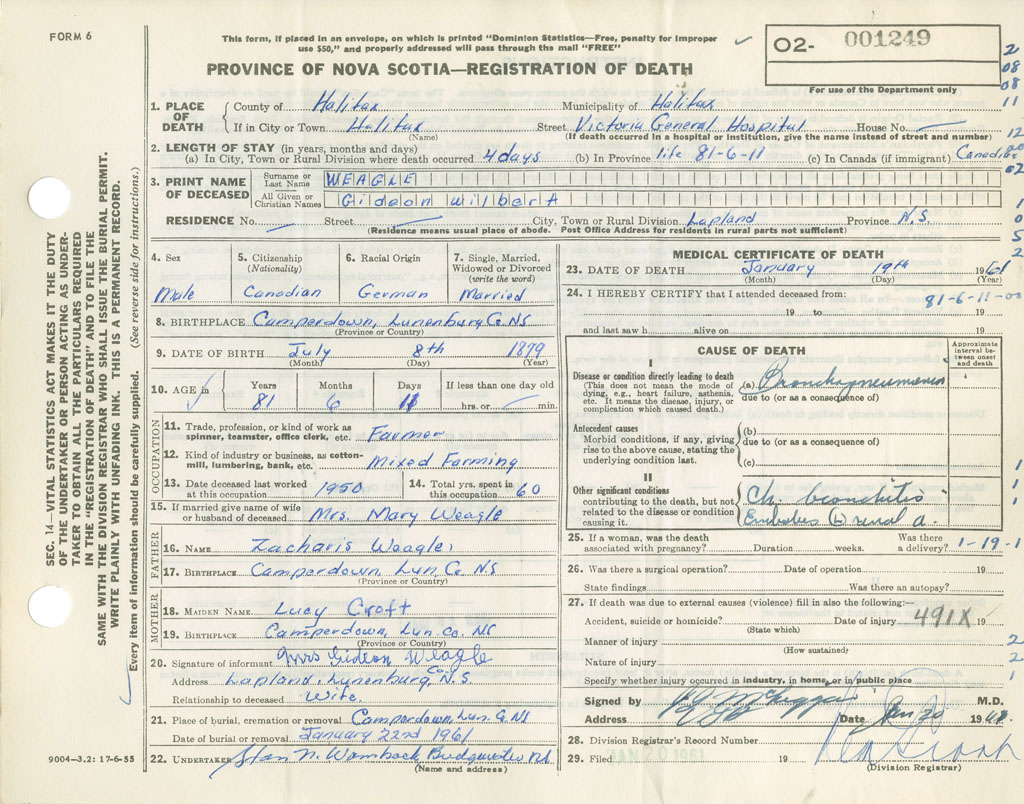 FORM 6
This form, if placed in an envelope, on which is printed "Dominion Statistics—Free, penalty for improper
use $50," and properly addressed will pass through the mail "FREE"
PROVINCE OF NOVA SCOTIA—REGISTRATION OF DEATH
O2- 001249
For use of the Department only
SEC. 14—VITAL STATISTICS ACT MAKES IT THE DUTY
OF THE UNDERTAKER OR PERSON ACTING AS UNDER-
TAKER TO OBTAIN ALL THE PARTICULARS REQUIRED
IN THE "REGISTRATION OF DEATH" AND TO FILE THE
SAME WITH THE DIVISION REGISTRAR WHO SHALL ISSUE THE BURIAL PERMIT.
WRITE PLAINLY WITH UNFADING INK. THIS IS A PERMANENT RECORD.
Every item of information should be carefully supplied. (See reverse side for instructions.)
1. PLACE OF DEATH
County of Halifax Municipality of Halifax
If in City or Town Halifax Street Victoria General Hospital House No.
(Name) (If death occurred in a hospital or institution, give the name instead of street and number)
2. LENGTH OF STAY (in years, months and days)
(a) In City, Town or Rural Division where death occurred 4 days (b) In Province life 81-6-11 (c) In Canada (if immigrant)
3. PRINT NAME OF DECEASED
Surname or Last Name WEAGLE
All Given or Christian Names Gideon Wilbert
RESIDENCE No. Street City, Town or Rural Division Lapland Province N.S.
(Residence means usual place of abode. Post Office Address for residents in rural parts not sufficient)
4. Sex
Male
5. Citizenship
(Nationality)
Canadian
6. Racial Origin
German
7. Single, Married,
Widowed or Divorced
(write the word)
Married
8. BIRTHPLACE Camperdown, Lunenburg Co. NS
(Province or Country)
9. DATE OF BIRTH July 8th 1879
(Month) (Day) (Year)
10. AGE in
Years Months Days If less than one day old
81 6 11 hrs. or min.
OCCUPATION
11. Trade, profession, or kind of work as
spinner, teamster, office clerk, etc. Farmer
12. Kind of industry or business, as cotton-
mill, lumbering, bank, etc. Mixed Farming
13. Date deceased last worked
at this occupation 1950
14. Total yrs. spent in
this occupation 60
15. If married give name of wife
or husband of deceased Mrs. Mary Weagle
FATHER
16. NAME Zacharis Weagle
17. BIRTHPLACE Camperdown, Lun. Co. N.S
(Province or Country)
MOTHER
18. MAIDEN NAME Lucy Croft
19. BIRTHPLACE Camperdown, Lun. Co. NS
(Province or Country)
20. Signature of informant Mrs Gideon Weagle
Address Lapland, Lunenburg Co. N.S.
Relationship to deceased Wife
21. Place of burial, cremation or removal Camperdown, Lun. Co. NS
Date of burial or removal January 22nd 1961
22. UNDERTAKER Stan N. Wambock Bridgewater NS
(Name and address)
9004—3.2: 17-6-55
MEDICAL CERTIFICATE OF DEATH
23. DATE OF DEATH January 19th 1961
(Month) (Day) (Year)
24. I HEREBY CERTIFY that I attended deceased from:
81-6-11-00
19 to 19
and last saw h alive on 19
CAUSE OF DEATH
Approximate
interval be-
tween onset
and death
I
Disease or condition directly leading to death
(This does not mean the mode of
dying, e.g., heart failure, asthenia,
etc. It means the disease, injury, or
complication which caused death.)
(a) Bronchopneumonia
due to (or as a consequence of)
Antecedent causes
Morbid conditions, if any, giving
rise to the above cause, stating the
underlying condition last.
(b)
due to (or as a consequence of)
(c)
II
Other significant conditions
contributing to the death, but not
related to the disease or condition
causing it.
Ch. bronchitis
Embolus (L) renal a.
25. If a woman, was the death
associated with pregnancy? Duration weeks. Was there
a delivery? 1-19-1
26. Was there a surgical operation? Date of operation 19
State findings Was there an autopsy?
27. If death was due to external causes (violence) fill in also the following:—
Accident, suicide or homicide? Date of injury 491X 19
(State which)
Manner of injury
(How sustained)
Nature of injury
Specify whether injury occurred in industry, in home, or in public place
Signed by M.D.
Address Date Jan 20 1961
28. Division Registrar's Record Number
29. Filed JAN 20 1961 19
(Division Registrar)
2
08
08
11
12
02
1
0
5
2
1
1
1
2
2
1